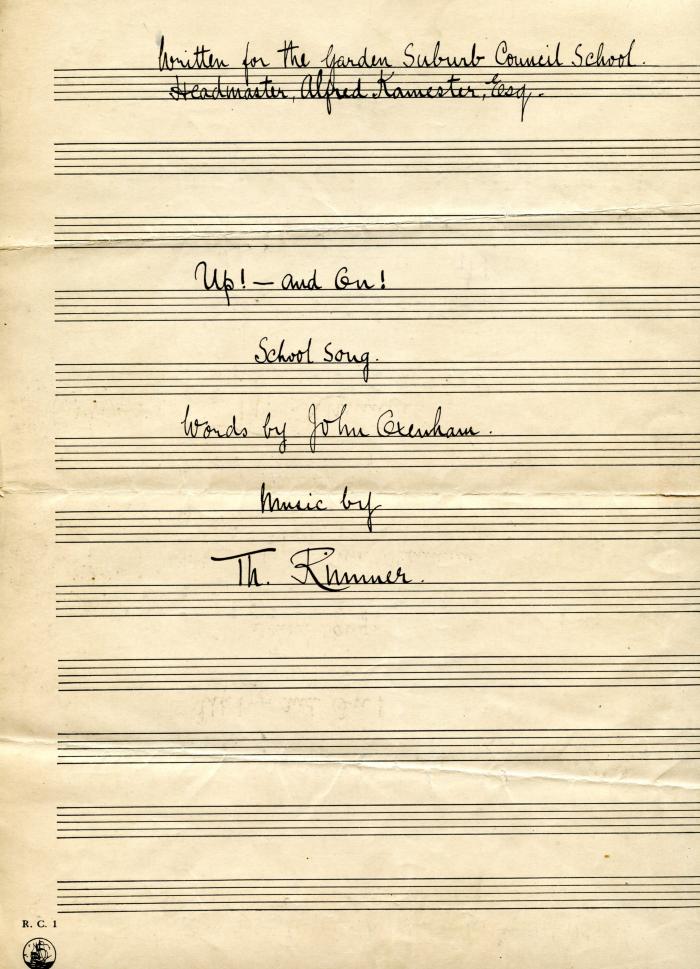 Written for the Garden Suburb Council School.
Headmaster, Alfred Kamester, Esq.
Up! — and On!
School Song.
Words by John Oxenham.
Music by
Th. Rimmer.
R. C. 1